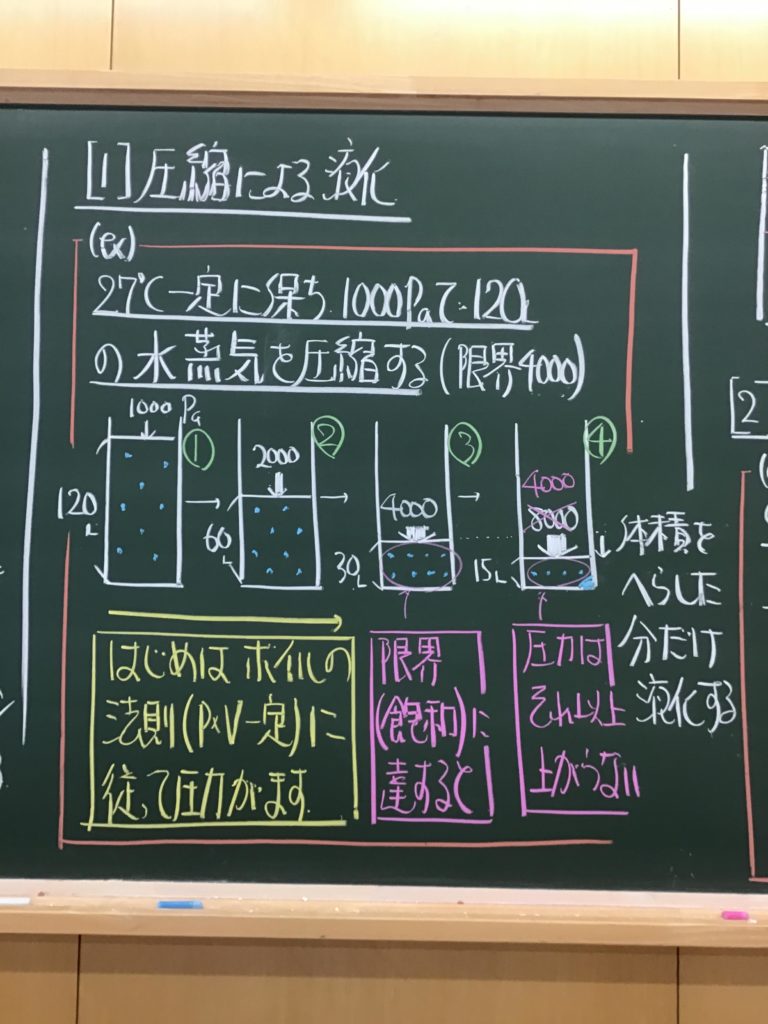 [1] 圧縮による液化
(ex)
27℃一定に保ち 1000Paで 120L
の水蒸気を圧縮する(限界4000)
1000 Pa
①
120L
2000
②
60L
4000
③
30L
4000
8000
④
15L
体積を
へらした
分だけ
液化する
はじめは ボイルの
法則(P×V一定)に
従って圧力がます
限界
(飽和)に
達すると
圧力は
それ以上
上がらない
[2